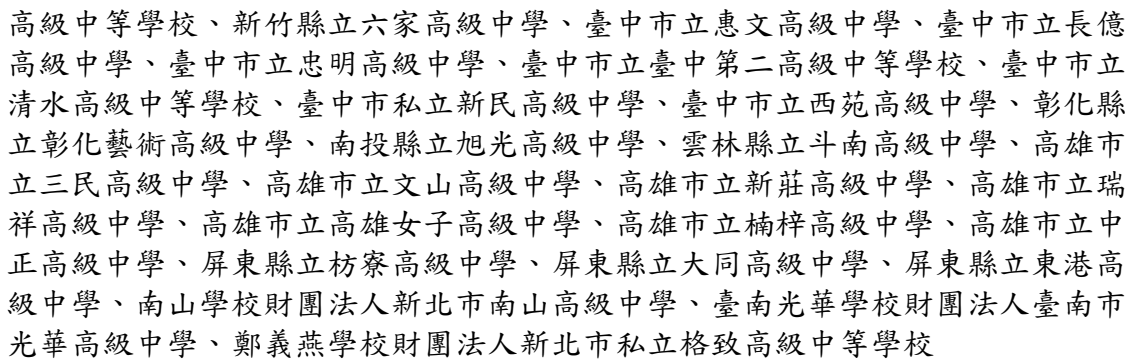 高級中等學校、新竹縣立六家高級中學、臺中市立惠文高級中學、臺中市立長億
高級中學、臺中市立忠明高級中學、臺中市立臺中第二高級中等學校、臺中市立
清水高級中等學校、臺中市私立新民高級中學、臺中市立西苑高級中學、彰化縣
立彰化藝術高級中學、南投縣立旭光高級中學、雲林縣立斗南高級中學、高雄市
立三民高級中學、高雄市立文山高級中學、高雄市立新莊高級中學、高雄市立瑞
祥高級中學、高雄市立高雄女子高級中學、高雄市立楠梓高級中學、高雄市立中
正高級中學、屏東縣立枋寮高級中學、屏東縣立大同高級中學、屏東縣立東港高
級中學、南山學校財團法人新北市南山高級中學、臺南光華學校財團法人臺南市
光華高級中學、鄭義燕學校財團法人新北市私立格致高級中等學校